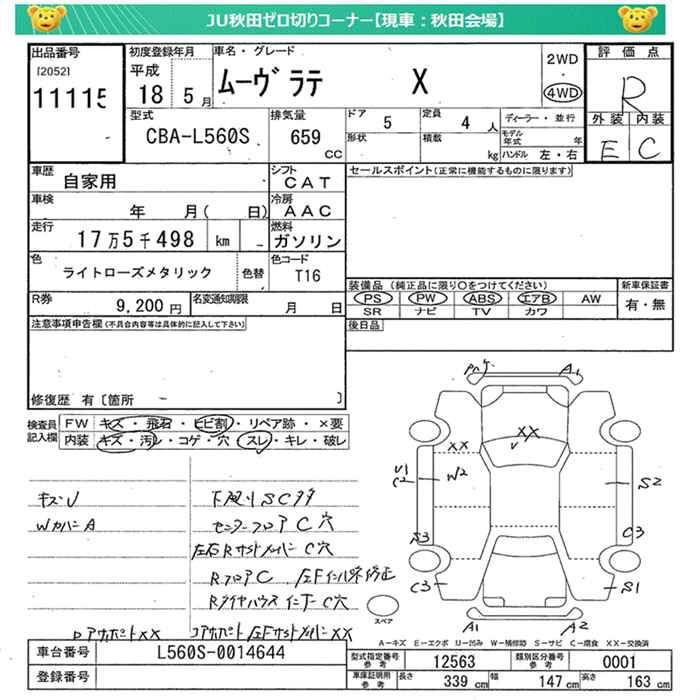 JU秋田ゼロ切りコーナー【現車：秋田会場】
出品番号
[2052]
11115
初度登録年月
平成
18 5月
車名・グレード
ムーヴラテ X
2WD
・
4WD
評価点
R
外装 内装
E C
型式
CBA-L560S
排気量
659
CC
ドア 5
定員 4 人
形状
積載
kg
ディーラー・並行
モデル年式 年
ハンドル 左・右
車歴
自家用
シフト
CAT
車検
年 月( 日)
冷房
AAC
走行
17万5千498 km
燃料
ガソリン
色
ライトローズメタリック
色替
色コード
T16
R券
9,200円
名変通知期限
月 日
セールスポイント(正常に機能するものに限ります)
装備品 (純正品に限り〇をつけてください)
PS PW ABS エアB AW
SR ナビ TV カワ
新車保証書
有・無
後日品
注意事項申告欄(不具合内容等は具体的に記入して下さい)
修復歴 有〔箇所 〕
検査員記入欄
FW キズ・飛石・ヒビ割・リペア跡・×要
内装 キズ・汚レ・コゲ・穴・スレ・キレ・破レ
キズU
WカバーA
下廻りSCサダ
センターフロアC穴
左右RサイドメンバーC穴
RフロアC
RタイヤハウスインナーC穴
XX
A1
XX
XX
W2
U1
C2
S2
S3
C3
C3
S1
A1
A2
スペア
A-キズ E-エクボ U-凹み W-補修跡 S-サビ C-腐食 XX-交換済
車台番号
L560S-0014644
登録番号
型式指定番号
参考
12563
類別区分番号
参考
0001
車庫証明用
参考
長さ 339 cm
幅 147 cm
高さ 163 cm